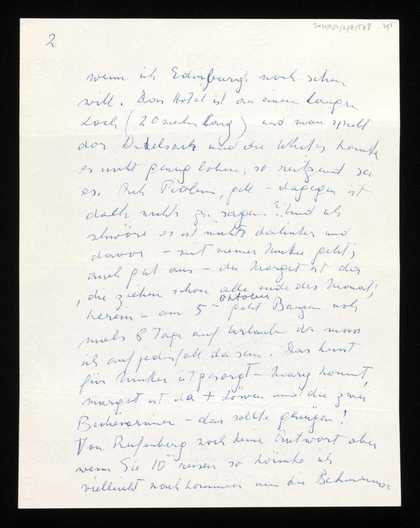 2
wenn ich Edinburgh noch sehen
will. Das Hotel ist an einem langen
Loch (20 meilen lang) und man spielt
das und die Whites
es nicht genug loben, so reitzend sei
es. Kein Problem, gelt - dagegen ist
doch nichts zu sagen! Und ich
schwöre es ist nichts dahinter und
davor - mit meiner Mutter geht's
auch gut aus - die Margot ist da,
die ziehen schon alle ende des Monats
herein - am 5 Oktober geht noch
mals 8 Tage auf Urlaub da muss
ich auf jedenfall da sein. Das heisst
für Mutter ist gesorgt - kommt,
margot ist da + und die zwei
- das sollte genügen!
Von Rufenberg noch keine Antwort aber
wenn Sie 10 reisen so könnte ich
vielleicht nachkommen um die